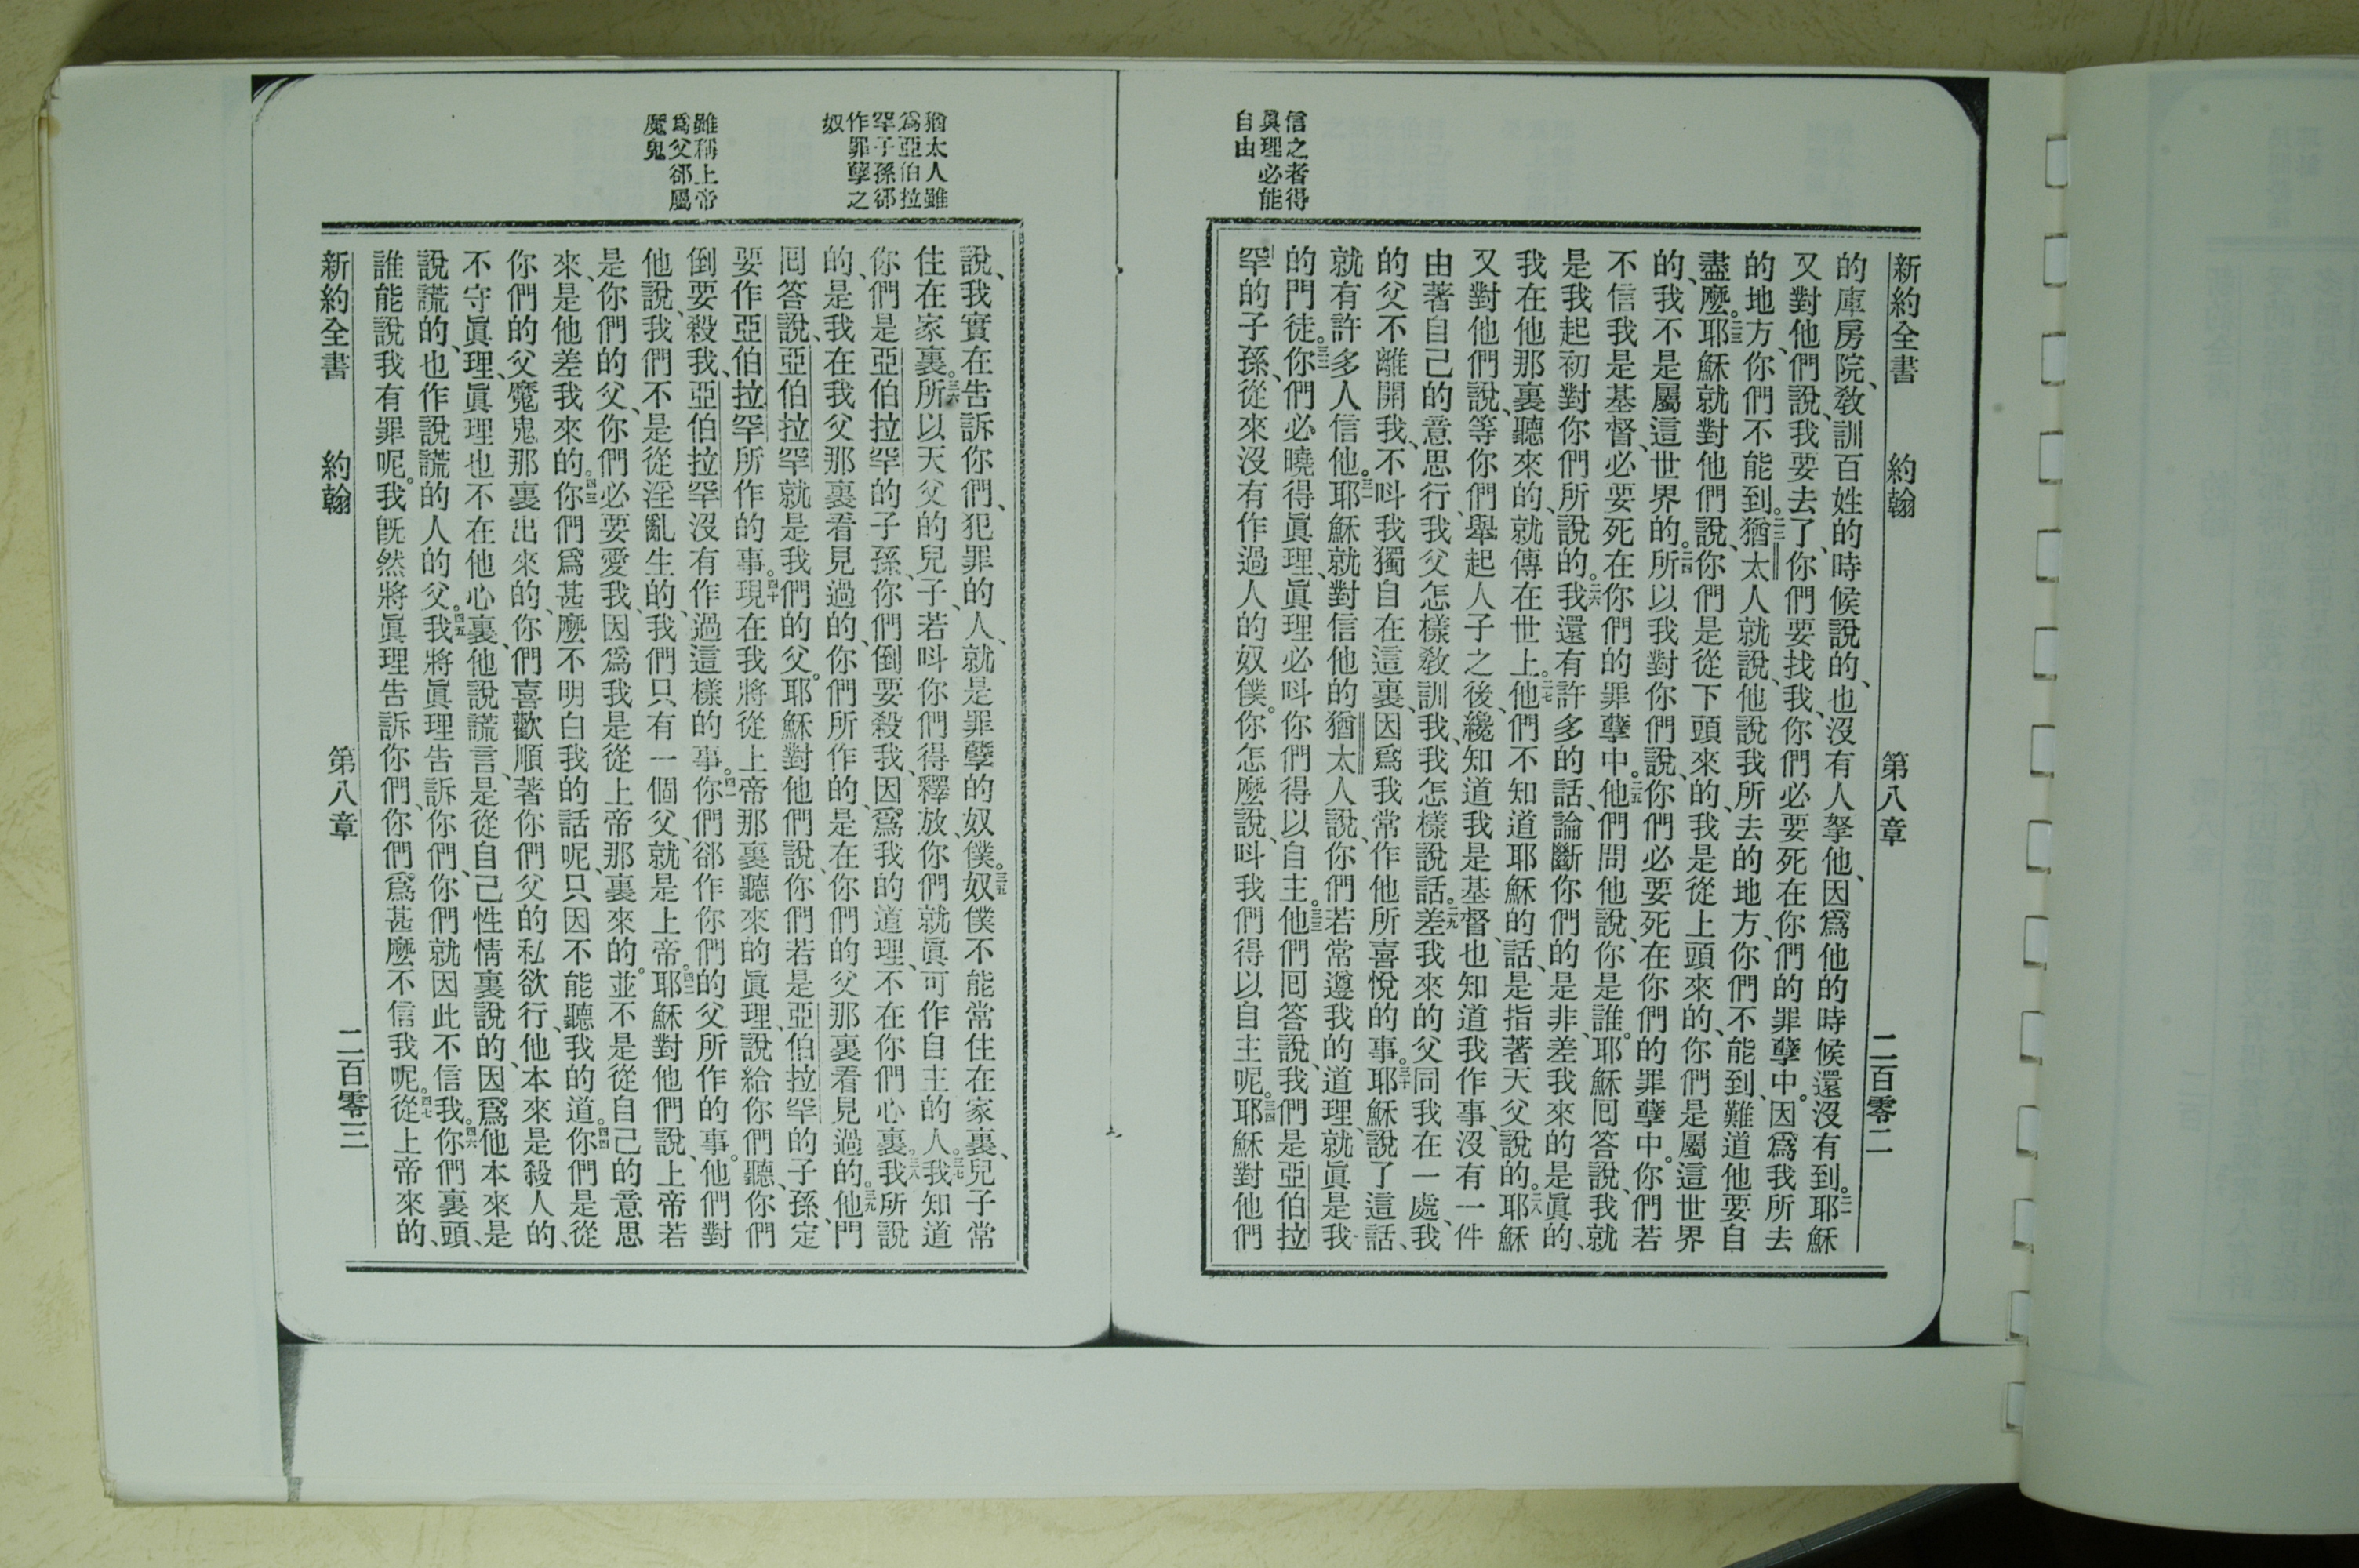 新約全書 約翰 第八章 二百零二
的庫房院、教訓百姓的時候說的、也沒有人拏他、因爲他的時候還沒有到。二一耶穌
又對他們說、我要去了、你們要找我、你們必要死在你們的罪孽中。因爲我所去
的地方、你們不能到。二二猶太人就說、他說我所去的地方、你們不能到、難道他要自
盡麼。二三耶穌就對他們說、你們是從下頭來的、我是從上頭來的、你們是屬這世界
的、我不是屬這世界的。二四所以我對你們說、你們必要死在你們的罪孽中。你們若
不信我是基督、必要死在你們的罪孽中。二五他們問他說、你是誰。耶穌囘答說、我就
是我起初對你們所說的。二六我還有許多的話、論斷你們的是非、差我來的是眞的、
我在他那裏聽來的、就傳在世上。二七他們不知道耶穌的話、是指著天父說的。二八耶穌
又對他們說、等你們舉起人子之後、纔知道我是基督、也知道我作事、沒有一件
由著自己的意思行、我父怎樣教訓我、我怎樣說話。二九差我來的父同我在一處、我
的父不離開我、不呌我獨自在這裏、因爲我常作他所喜悅的事。三十耶穌說了這話、
就有許多人信他。三一耶穌就對信他的猶太人說、你們若常遵我的道理、就眞是我
的門徒。三二你們必曉得眞理、眞理必呌你們得以自主。三三他們囘答說、我們是亞伯拉
罕的子孫、從來沒有作過人的奴僕。你怎麼說、呌我們得以自主呢。三四耶穌對他們
信之者得
眞理必能
自由
說、我實在告訴你們、犯罪的人、就是罪孽的奴僕。三五奴僕不能常住在家裏、兒子常
住在家裏。三六所以天父的兒子、若呌你們得釋放、你們就眞可作自主的人。三七我知道
你們是亞伯拉罕的子孫、你們倒要殺我、因爲我的道理、不在你們心裏。三八我所說
的、是我在我父那裏看見過的、你們所作的、是在你們的父那裏看見過的。三九他門
囘答說、亞伯拉罕就是我們的父。耶穌對他們說、你們若是亞伯拉罕的子孫、定
要作亞伯拉罕所作的事。四十現在我將從上帝那裏聽來的眞理、說給你們聽、你們
倒要殺我、亞伯拉罕沒有作過這樣的事。四一你們郤作你們的父所作的事。他們對
他說、我們不是從淫亂生的、我們只有一個父、就是上帝。四二耶穌對他們說、上帝若
是你們的父、你們必要愛我、因爲我是從上帝那裏來的。並不是從自己的意思
來、是他差我來的。四三你們爲甚麼不明白我的話呢、只因不能聽我的道。四四你們是從
你們的父魔鬼那裏出來的、你們喜歡順著你們父的私欲行、他本來是殺人的、
不守眞理、眞理也不在他心裏、他說謊言、是從自己性情裏說的、因爲他本來是
說謊的、也作說謊的人的父。四五我將眞理告訴你們、你們就因此不信我。四六你們裏頭、
誰能說我有罪呢。我旣然將眞理告訴你們、你們爲甚麼不信我呢。四七從上帝來的、
新約全書 約翰 第八章 二百零三
猶太人雖
爲亞伯拉
罕子孫郤
作罪孽之
奴
雖稱上帝
爲父郤屬
魔鬼